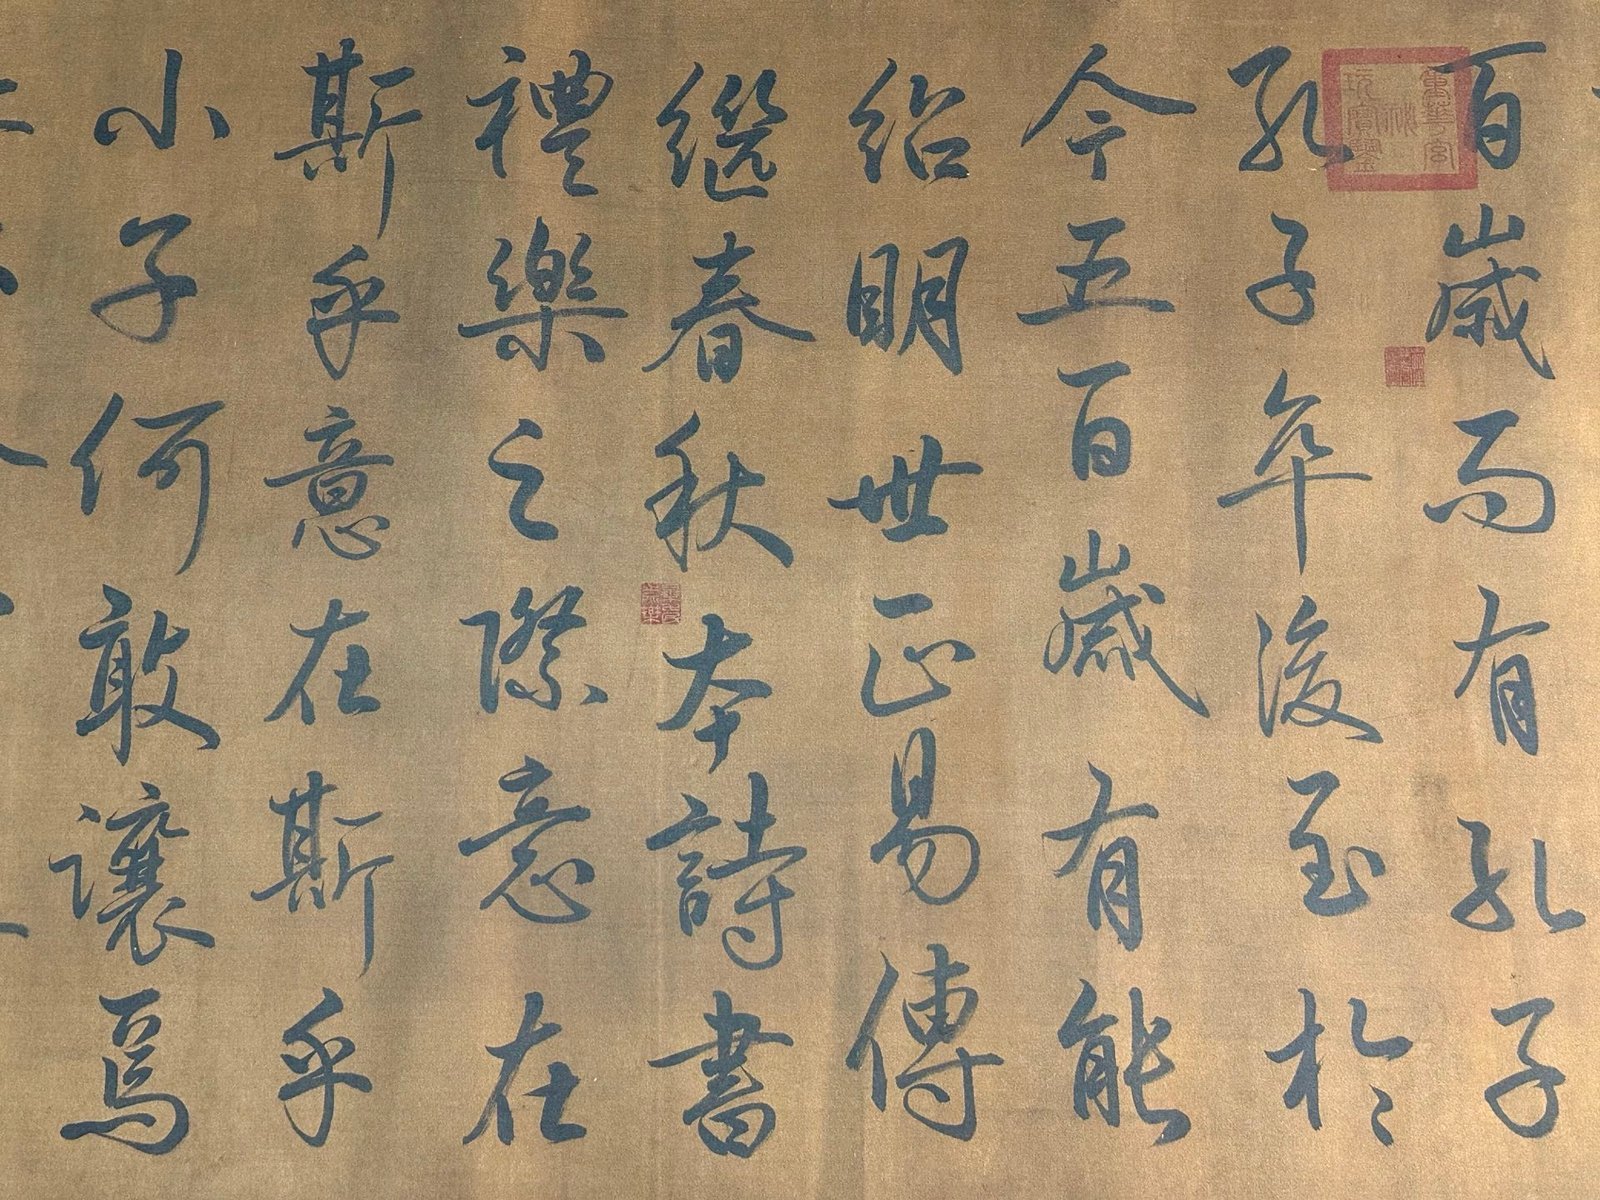 百歲而有孔子
孔子卒後至於
今五百歲有能
紹明世正易傳
繼春秋本詩書
禮樂之際意在
斯乎意在斯乎
小子何敢讓焉